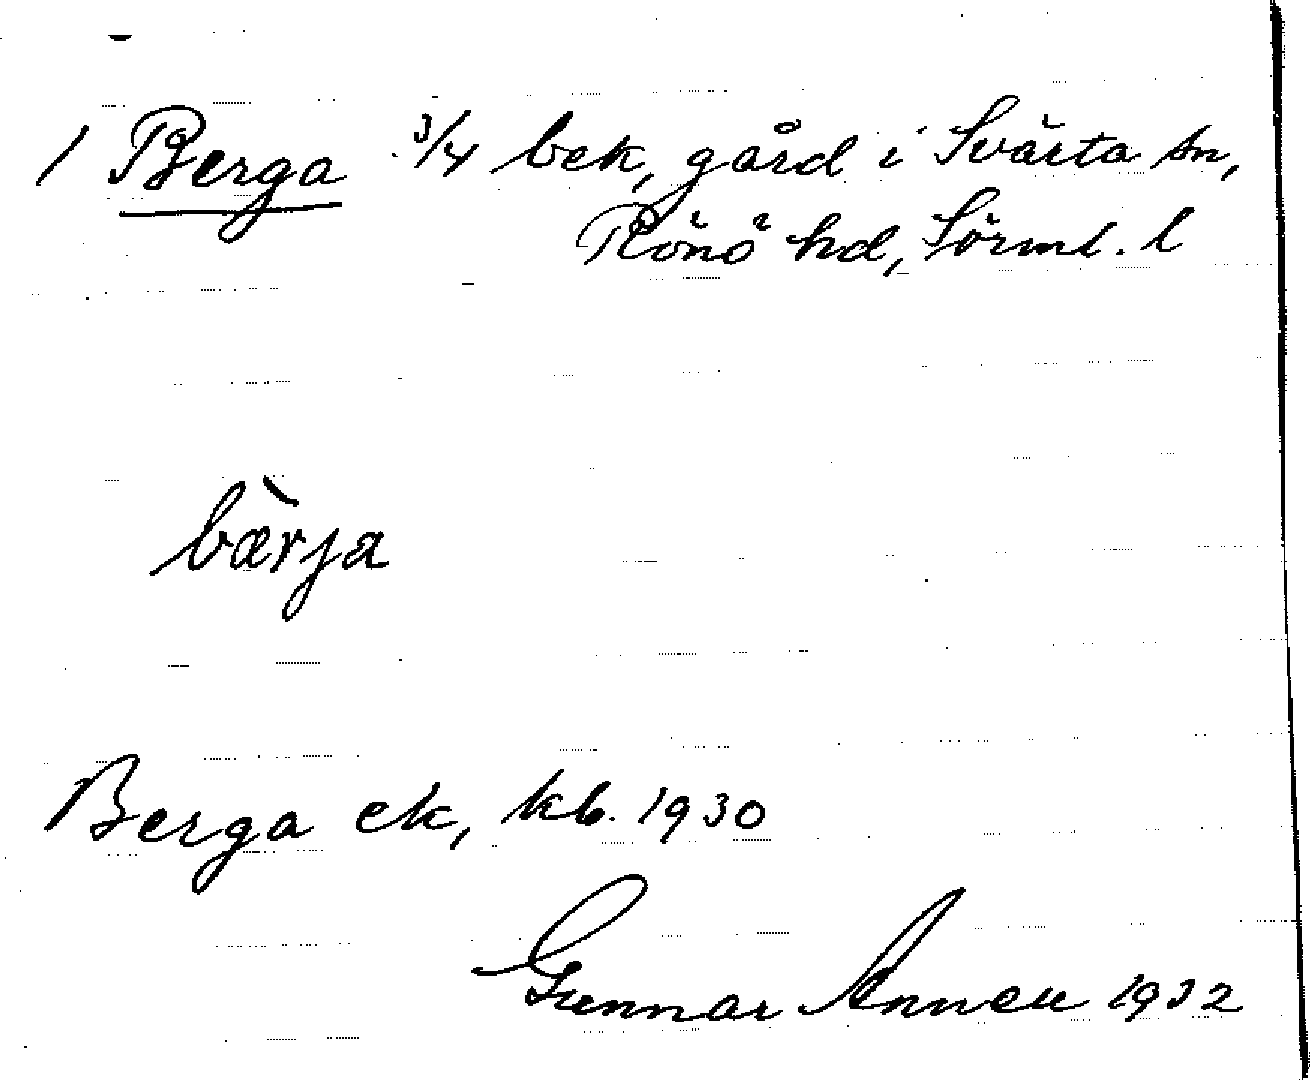 1 Berga 3/4 bek, gård i Svärta sn,
Rönö hd, Sörml. l
bæ̀rja
Berga ek, kb. 1930
Gunnar Annell 1932